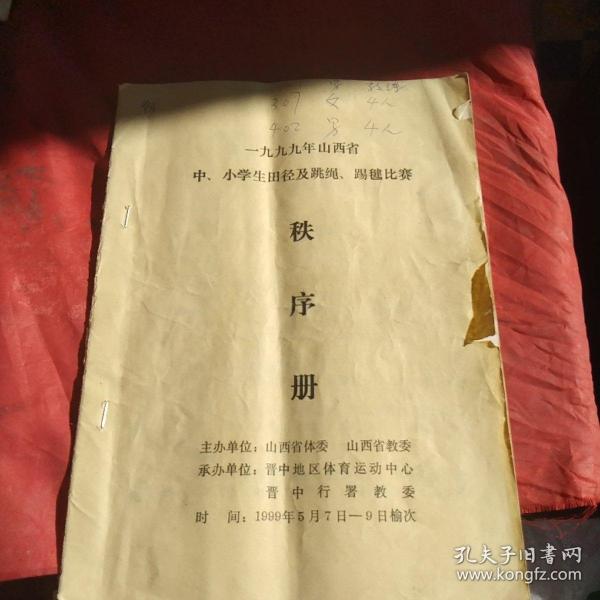 307 女 4人
402 男 4人
一九九九年山西省
中、小学生田径及跳绳、踢毽比赛
秩
序
册
主办单位：山西省体委 山西省教委
承办单位：晋中地区体育运动中心
晋中行署教委
时 间：1999年5月7日—9日榆次
孔夫子旧书网
www.kongfz.com